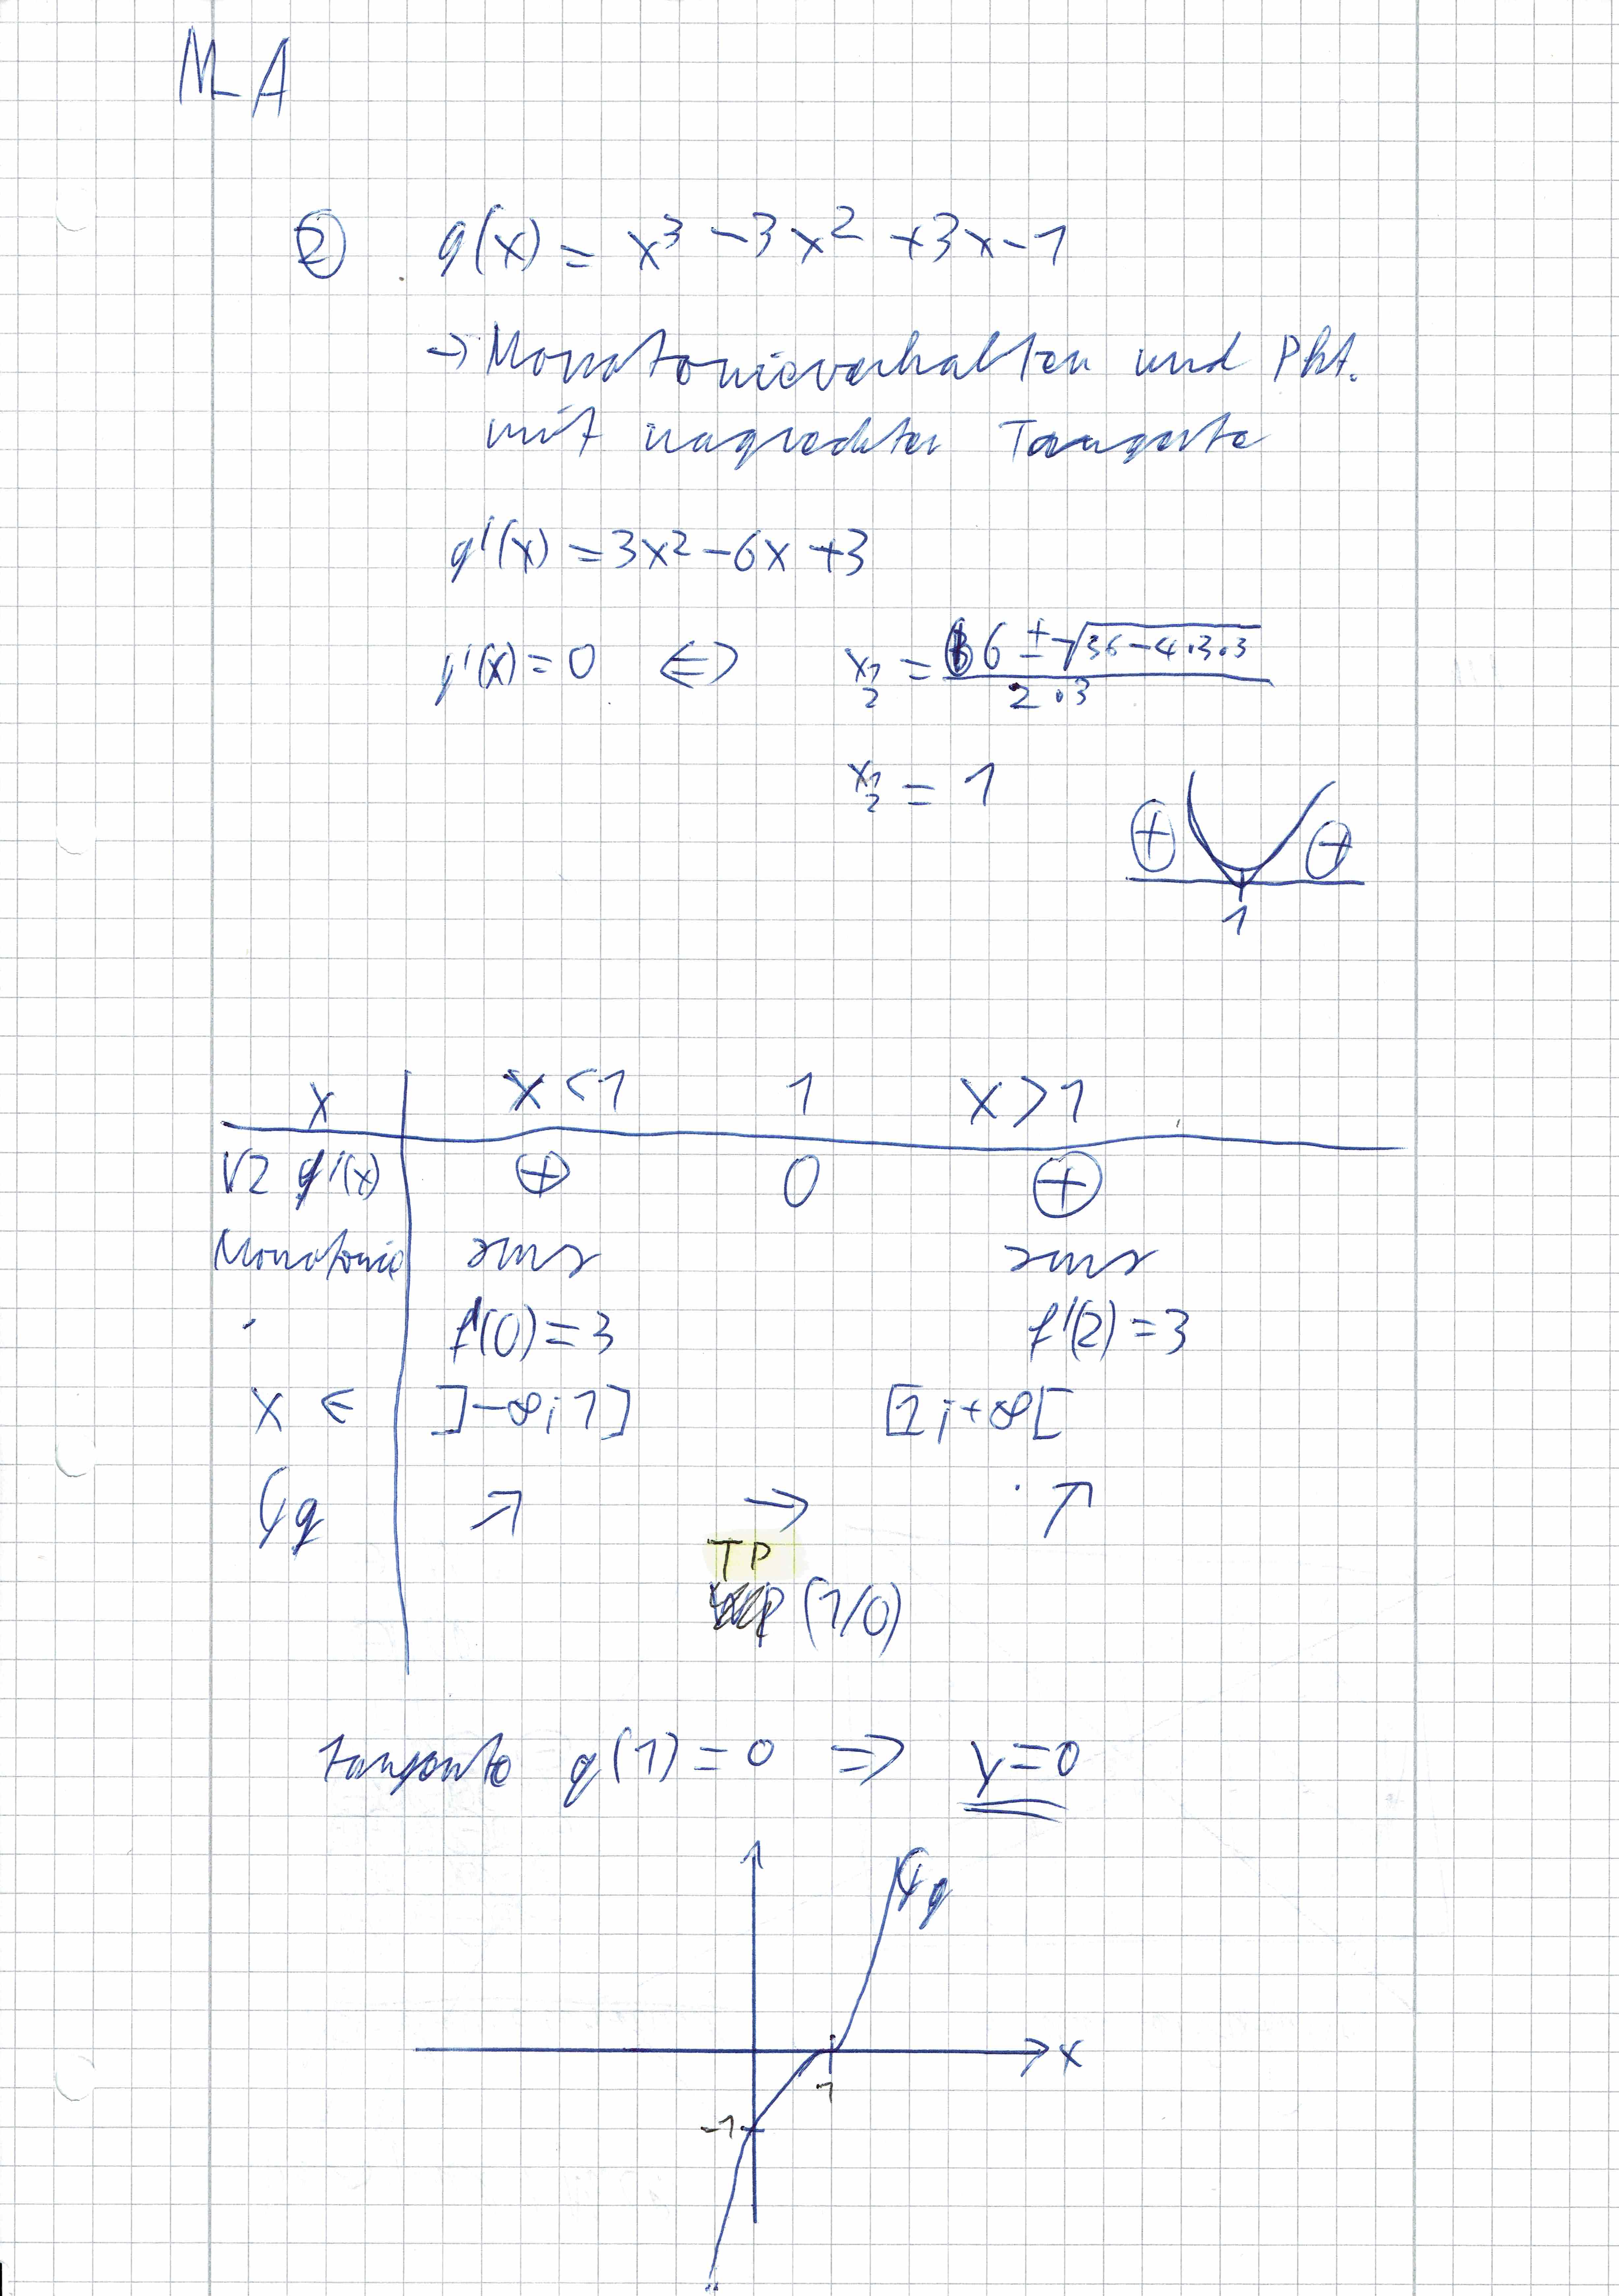 M_A
② g(x) = x³ -3x² +3x-1
→ Monotonieverhalten und Pkt.
mit waagrechter Tangente
g'(x) = 3x² -6x +3
g'(x) = 0 ⇔ x₁/₂ = 6 ± √36-4·3·3 / 2·3
x₁/₂ = 1
+ +
1
x x<1 1 x>1
VZ g'(x) ⊕ 0 ⊕
Monotonie sms sms
f'(0) = 3 f'(2) = 3
x ∈ ]-∞;1] [1;+∞[
Gg ↗ → ↗
TP
(1/0)
tangente g(1) = 0 ⇒ y=0
Gg
x
1
-1